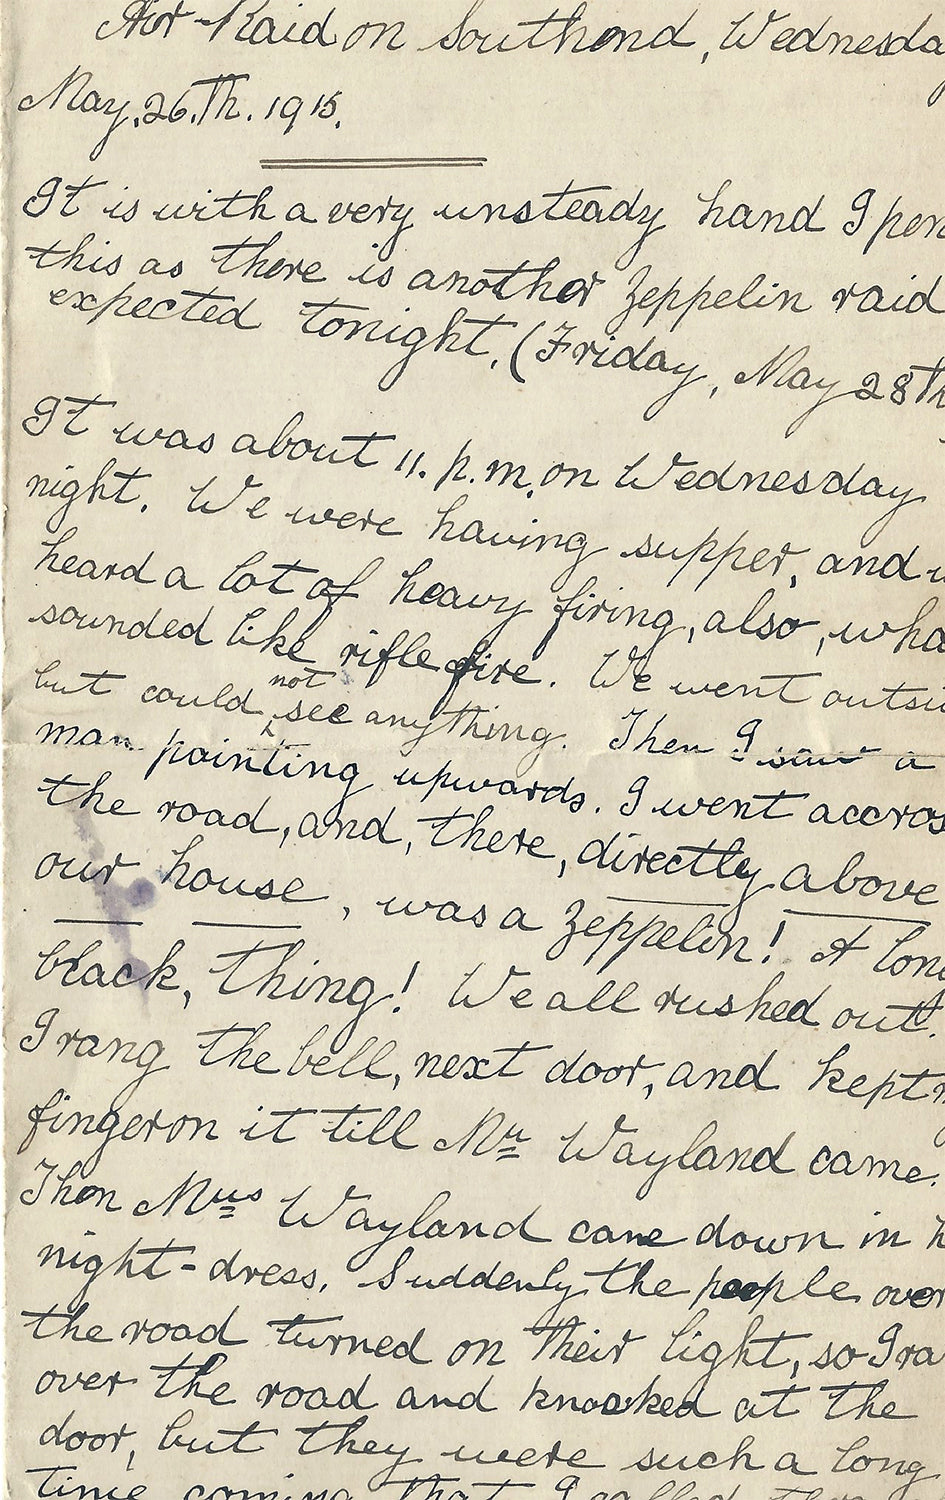 Air-Raid on Southend, Wednesda
May, 26.Th. 1915.
It is with a very unsteady hand I pen
this as there is another Zeppelin raid
expected tonight. (Friday, May 28Th
It was about 11. p.m. on Wednesday
night. We were having supper, and w
heard a lot of heavy firing, also, wha
sounded like rifle fire. We went outsi
but could not see anything. Then I saw a
man pointing upwards. I went accros
the road, and, there, directly above
our house, was a Zeppelin! A lon
black, thing! We all rushed out.
I rang the bell, next door, and kept m
finger on it till Mr Wayland came.
Then Mrs Wayland came down in h
night-dress. Suddenly the people over
the road turned on their light, so I ra
over the road and knocked at the
door, but they were such a long
time coming that I called